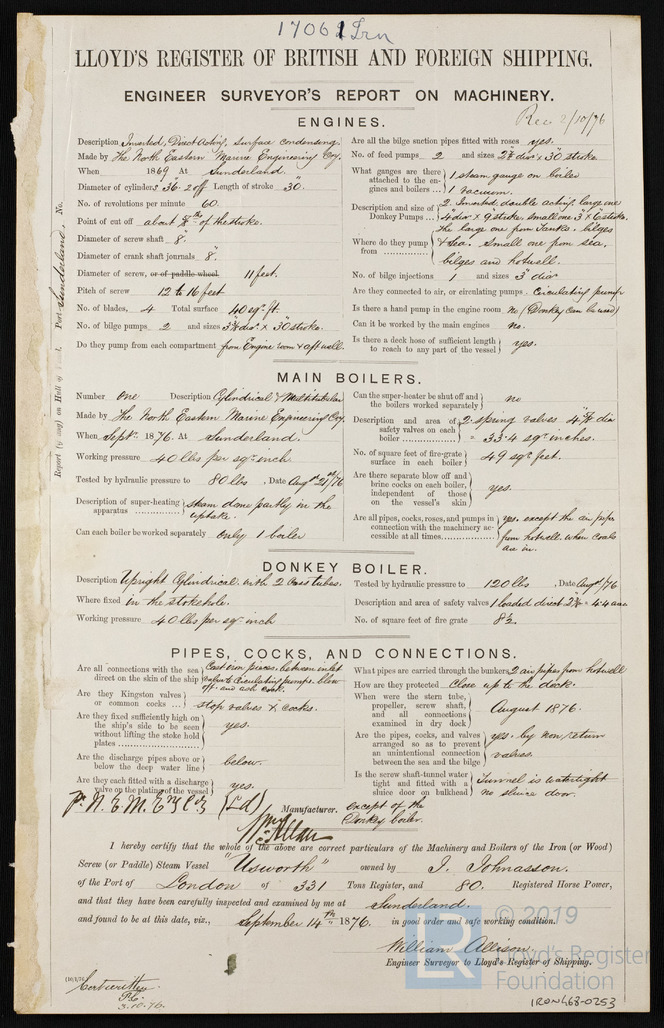 17061 Irn
LLOYD'S REGISTER OF BRITISH AND FOREIGN SHIPPING.
ENGINEER SURVEYOR'S REPORT ON MACHINERY.
Rec 2/10/76
ENGINES.
Port Sunderland. No.
Report on Hull of No.
Description Inverted, Direct Acting, surface condensing.
Made by The North Eastern Marine Engineering Coy.
When 1869 At Sunderland.
Diameter of cylinders 36" 2 off Length of stroke 30".
No. of revolutions per minute 60.
Point of cut off about of the stroke.
Diameter of screw shaft 8".
Diameter of crank shaft journals 8".
Diameter of screw, or of paddle wheel 11 feet.
Pitch of screw 12 to 16 feet
No. of blades, 4 Total surface 40 sqr. ft.
No. of bilge pumps 2 and sizes diar. x 30" stroke.
Do they pump from each compartment from Engine room & aft well.
Are all the bilge suction pipes fitted with roses yes.
No. of feed pumps 2 and sizes diar x 30" stroke.
What gauges are there attached to the engines and boilers ... 1 steam gauge on boiler
1 vacuum.
Description and size of Donkey Pumps ... 2 Inverted, double acting, large one
4" diar x 9" stroke, small one 3" x 6" stroke.
Where do they pump from The large one from Tanks, bilges
& Sea. Small one from sea,
bilges and hotwell.
No. of bilge injections 1 and sizes 3" diar
Are they connected to air, or circulating pumps Circulating pump
Is there a hand pump in the engine room no (Donkey can be used)
Can it be worked by the main engines no.
Is there a deck hose of sufficient length to reach to any part of the vessel yes.
MAIN BOILERS.
Number one Description Cylindrical & Multitubular
Made by The North Eastern Marine Engineering Coy.
When Septr. 1876. At Sunderland.
Working pressure 40 lbs per sqr inch
Tested by hydraulic pressure to 80 lbs. Date Augst 21st/76
Description of super-heating apparatus steam dome partly in the
uptake.
Can each boiler be worked separately only 1 boiler
Can the super-heater be shut off and the boilers worked separately no
Description and area of safety valves on each boiler 2 spring valves dia
= 33.4 sqr inches.
No. of square feet of fire-grate surface in each boiler 49 sqr feet.
Are there separate blow off and brine cocks on each boiler, independent of those on the vessel's skin yes.
Are all pipes, cocks, roses, and pumps in connection with the machinery accessible at all times yes, except the air pipe
from hotwell when coals
are in.
DONKEY BOILER.
Description Upright Cylindrical. with 2 cross tubes.
Where fixed in the stokehole.
Working pressure 40 lbs per sqr inch
Tested by hydraulic pressure to 120 lbs. Date Augst/76
Description and area of safety valves 1 loaded direct = 4.4 area
No. of square feet of fire grate 8½.
PIPES, COCKS, AND CONNECTIONS.
Are all connections with the sea direct on the skin of the ship Cast iron pieces between inlet
valve & Circulating pumps. Blow
off. and ash cock.
Are they Kingston valves or common cocks ... stop valves & cocks.
Are they fixed sufficiently high on the ship's side to be seen without lifting the stoke hold plates yes.
Are the discharge pipes above or below the deep water line below.
Are they each fitted with a discharge valve on the plating of the vessel yes.
What pipes are carried through the bunkers 2 air pipes from hotwell
How are they protected Close up to the deck.
When were the stern tube, propeller, screw shaft, and all connections examined in dry dock August 1876.
Are the pipes, cocks, and valves arranged so as to prevent an unintentional connection between the sea and the bilge yes. by non return
valves.
Is the screw shaft-tunnel water tight and fitted with a sluice door on bulkhead Tunnel is watertight
no sluice door.
pr N. E. M. Eng Coy (Ld) Manufacturer. except of the
Wm Allan Donkey boiler.
I hereby certify that the whole of the above are correct particulars of the Machinery and Boilers of the Iron (or Wood)
Screw (or Paddle) Steam Vessel "Usworth" owned by J. Johnasson.
of the Port of London of 331 Tons Register, and 80. Registered Horse Power,
and that they have been carefully inspected and examined by me at Sunderland.
and found to be at this date, viz., September 14th 1876. in good order and safe working condition.
William Allison.
Engineer Surveyor to Lloyd's Register of Shipping.
3.10.76.
© 2019
LR Lloyd's Register
Foundation
IRON468-0253